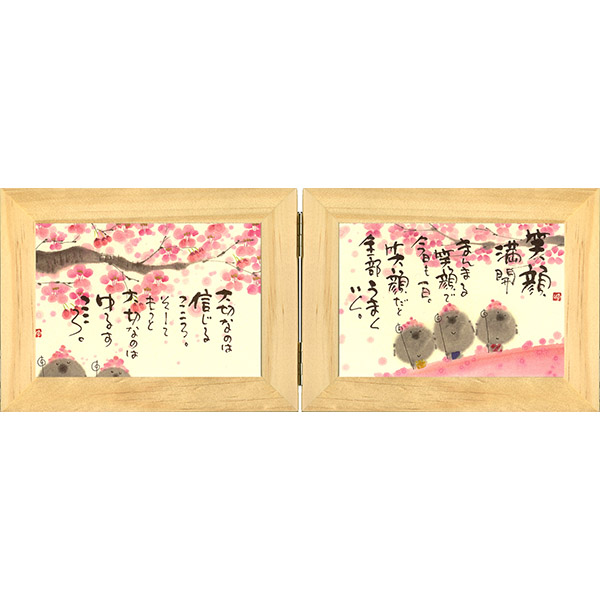 大切なのは
信じる
こころ。
そして
もっと
大切なのは
ゆるす
こころ。
笑顔
満開
まんまる
笑顔で
今日も一日。
笑顔だと
全部うまく
いく。